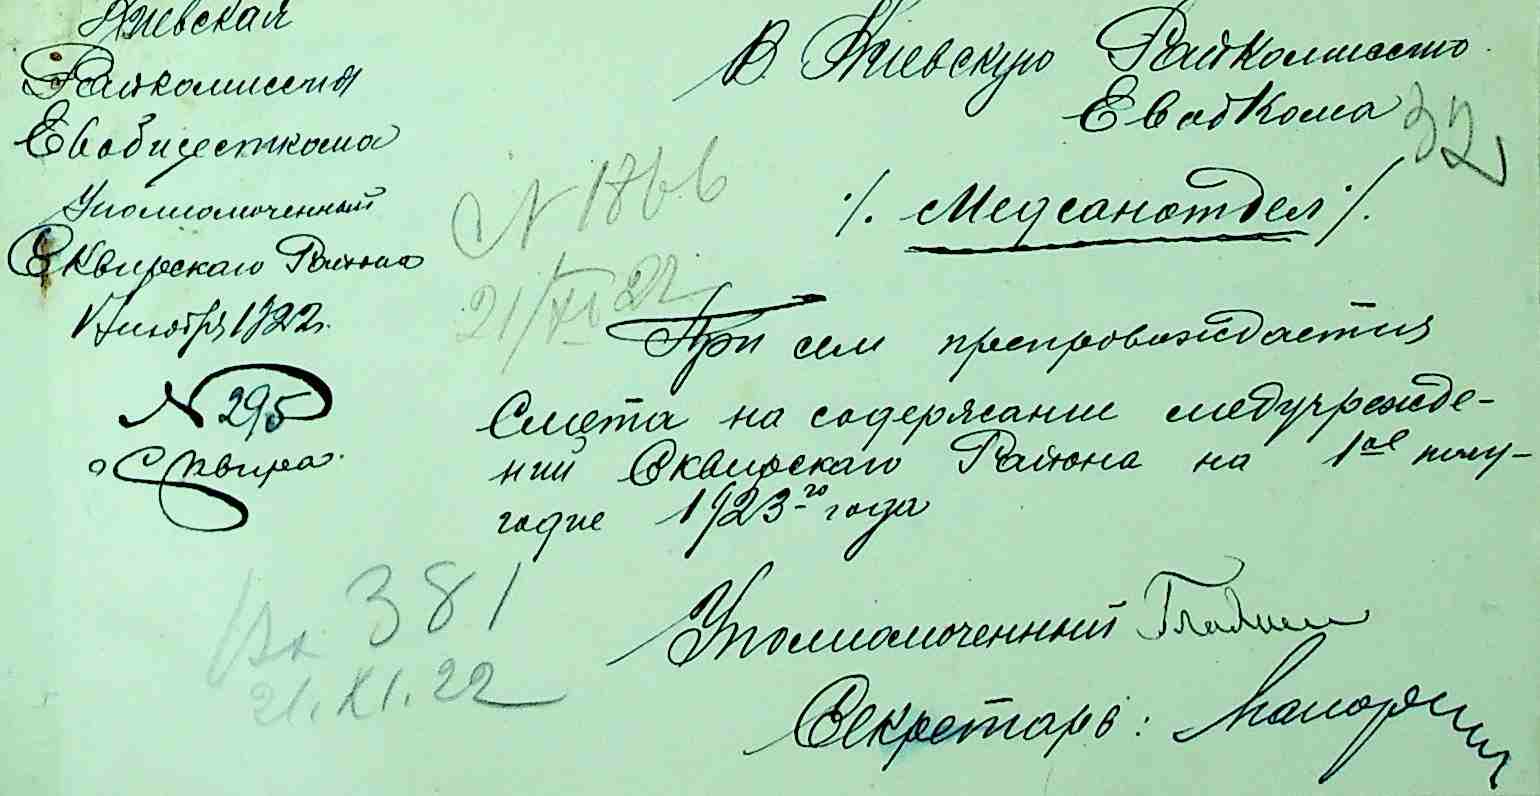 Киевская
Райкомиссия
Евобщесткома
Уполномоченный
Сквирскаго Района
ноября 1922г.
N 295
г. Сквира.
В Киевскую Райкомиссию
Евобкома
32
/. Медсанотдел /.
N 1866
21/XI 22
При сем препровождается
Смета на содержание медучрежде-
ний Сквирскаго Района на 1ое полу-
годие 1923-го года
Вх 381
21.XI.22
Уполномоченный
Секретарь: